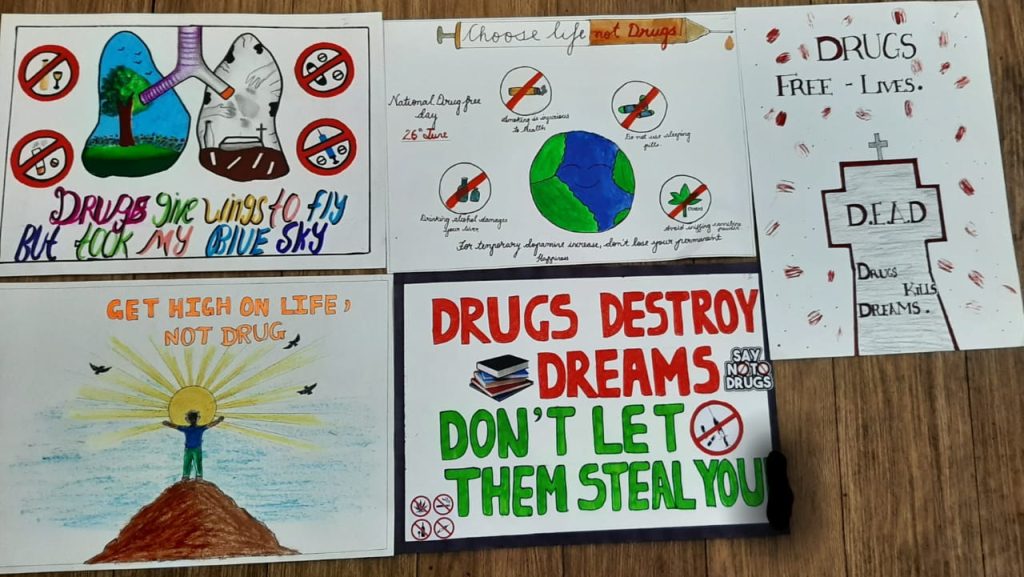 DRUGS give wings to fly
BUT took MY BLUE SKY
Choose life not Drugs!
National Drug free
day
26th June
Smoking is injurious
to health
Do not use sleeping
pills
Drinking alcohol damages
your liver
Avoid sniffing cannabis
powder
For temporary dopamine increase, don't lose your permanent
Happiness
DRUGS
FREE - LIVES.
D.E.A.D
DRUGS
KILLS
DREAMS.
GET HIGH ON LIFE,
NOT DRUG
DRUGS DESTROY
DREAMS
SAY
NO TO
DRUGS
DON'T LET
THEM STEAL YOU